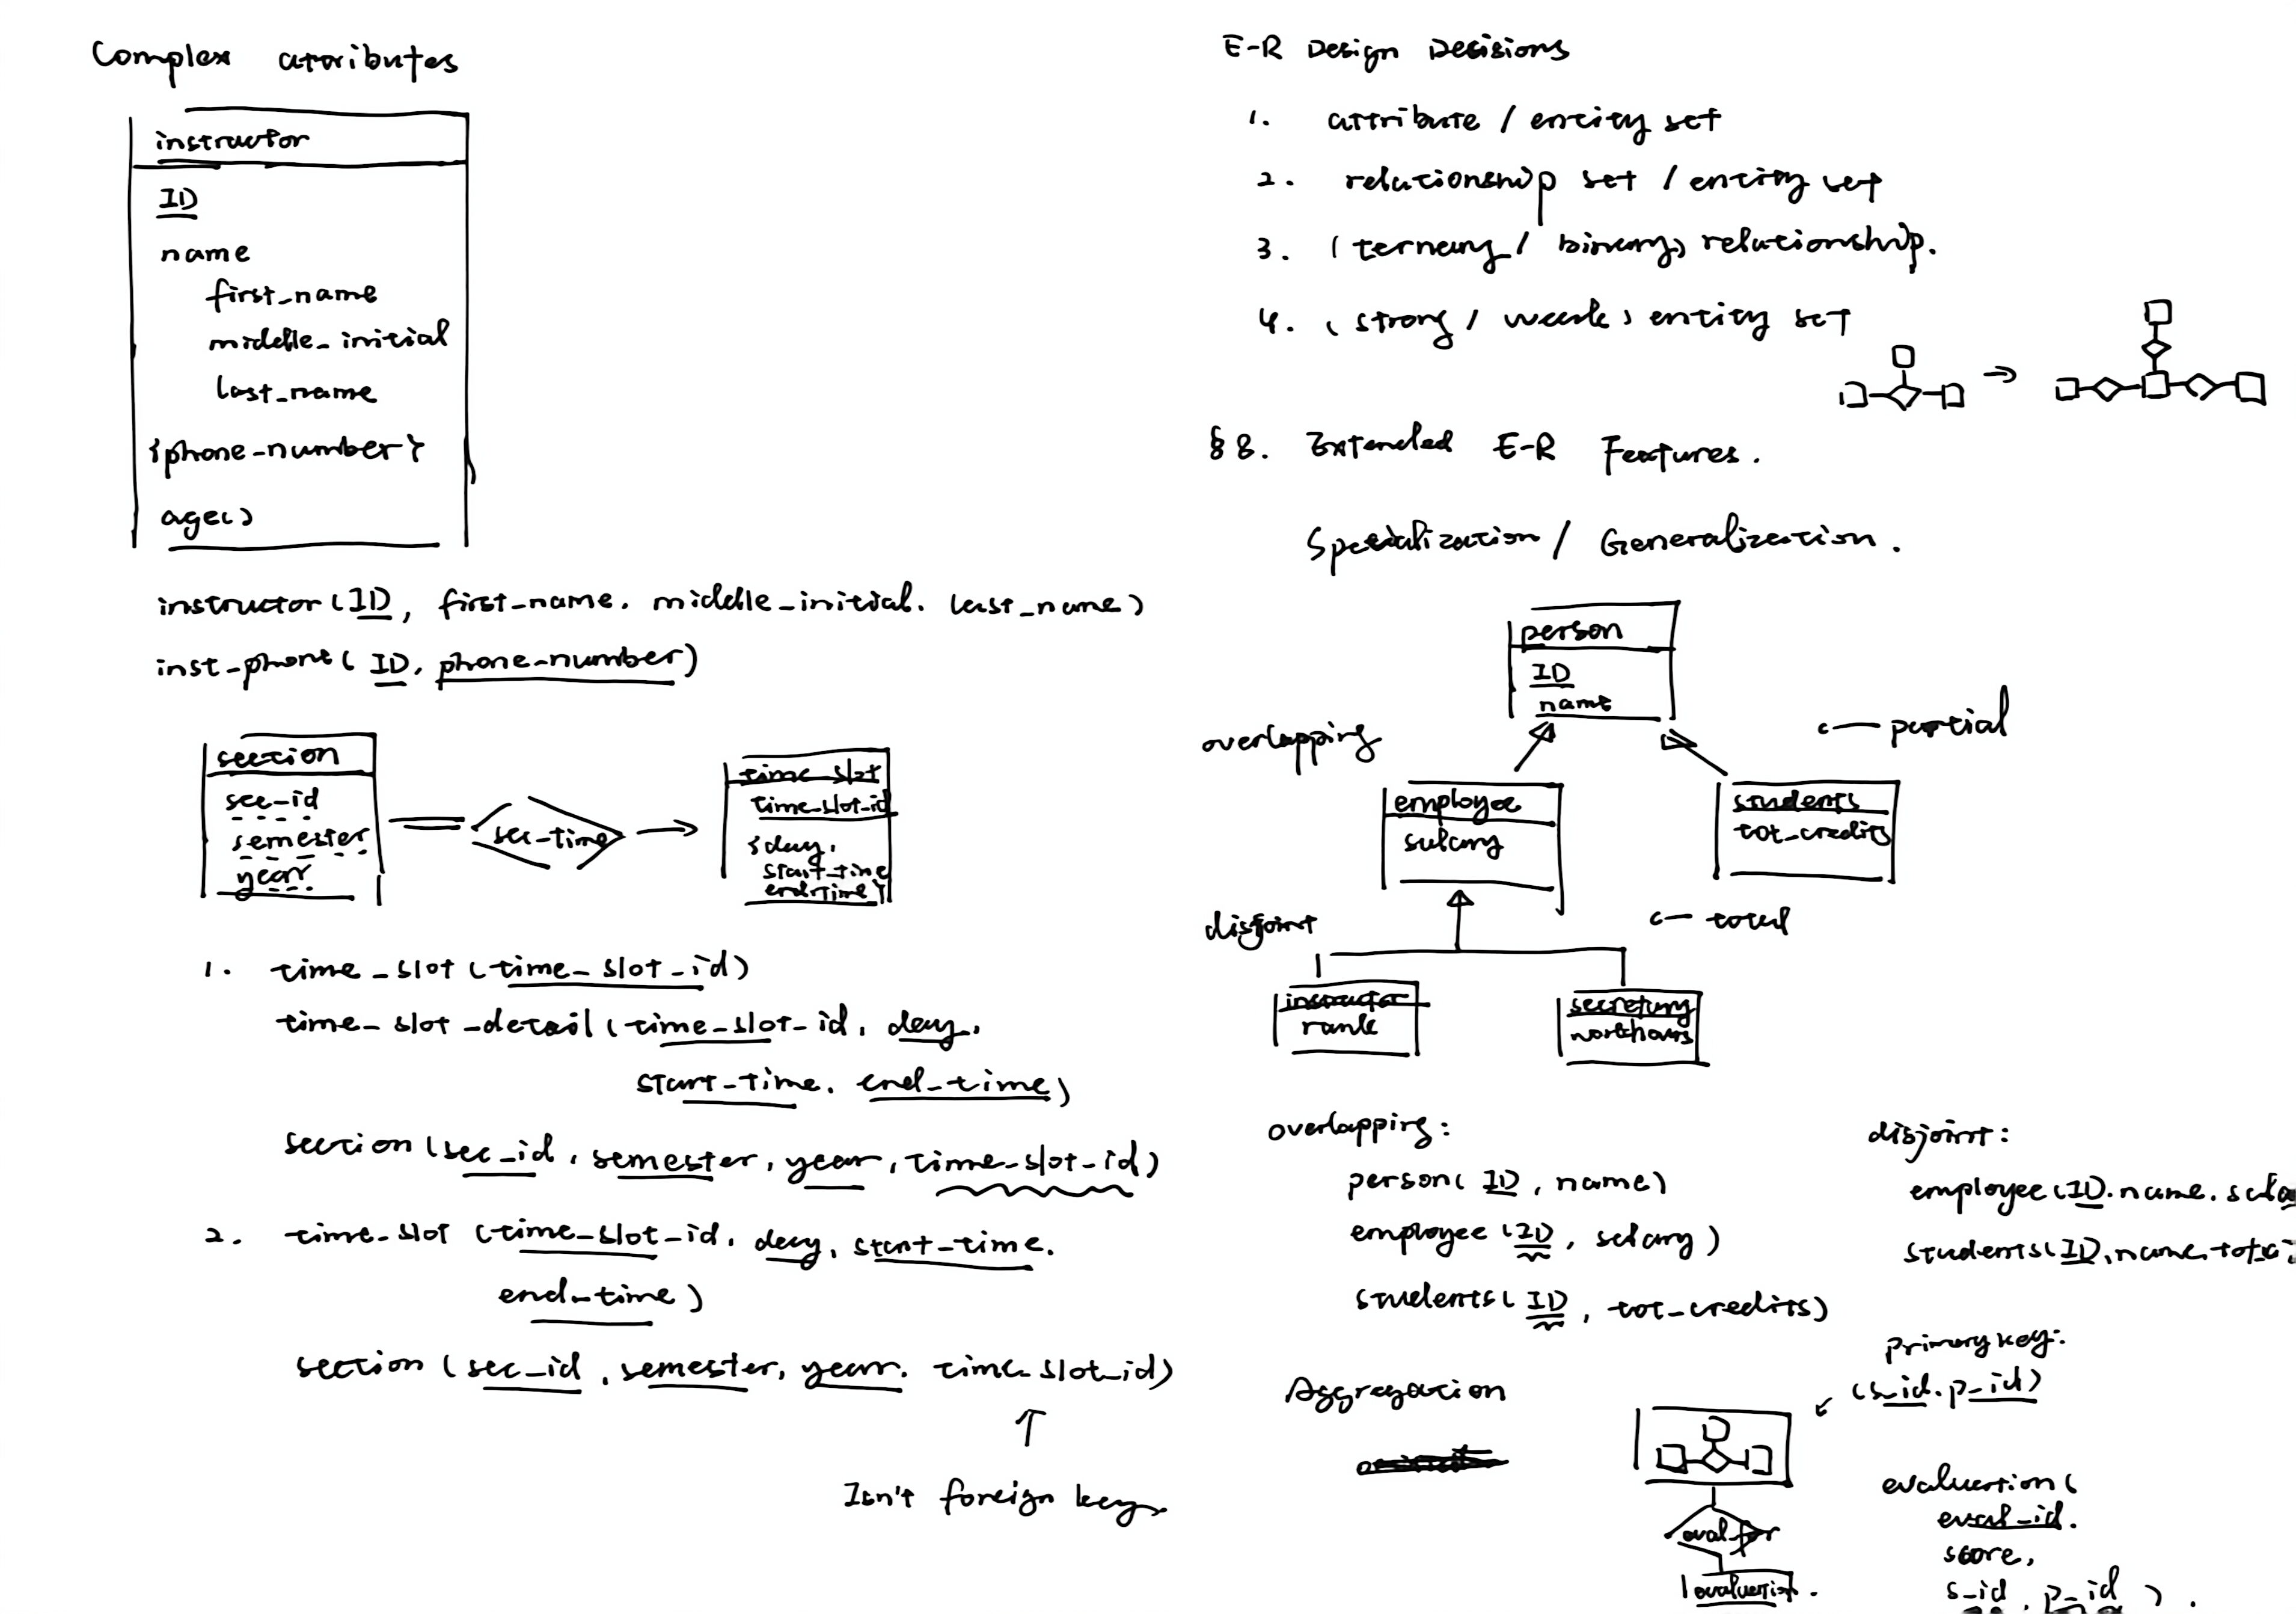 Complex attributes
instructor
ID
name
first_name
middle_initial
last_name
{phone-number}
age()
instructor(ID, first_name. middle_initial. last_name)
inst-phone( ID, phone-number)
section
sec-id
semester
year
sec-time
time_slot
time_slot_id
{day,
start_time
end_time}
1. time_slot (time_slot_id)
time_slot_detail (time_slot_id, day,
start_time. end_time)
section (sec_id, semester, year, time_slot_id)
2. time_slot (time_slot_id, day, start_time.
end_time)
section (sec_id, semester, year. time_slot_id)
↑
Isn't foreign key
E-R Design Decisions
1. attribute / entity set
2. relationship set / entity set
3. (ternary / binary) relationship.
4. (strong / weak) entity set
⇒
§8. Extended E-R Features.
Specialization / Generalization.
person
ID
name
overlapping
← partial
employee
salary
students
tot_credits
disjoint
← total
instructor
rank
secretary
workhours
overlapping:
person( ID, name)
employee (ID, salary)
students( ID, tot_credits)
disjoint:
employee (ID. name. sala
students (ID, name, tot_c
Aggregation
primary key:
(s_id. p_id)
eval_for
evaluation.
evaluation (
eval_id.
score,
s_id, p_id ).